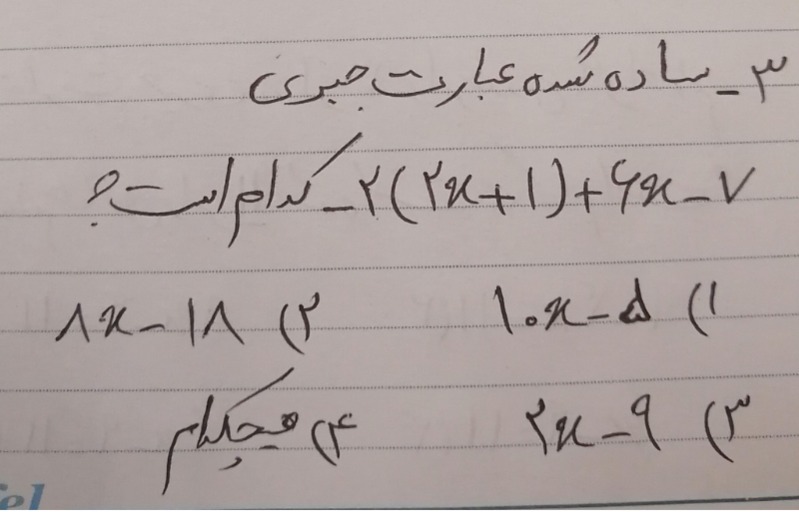 ۳ـ ساده شده عبارت جبری
-۲(۲x+۱)+۶x-۷ کدام است؟
۱) ۱۰x-۵ ۲) ۸x-۱۸
۳) ۲x-۹ ۴) هیچکدام